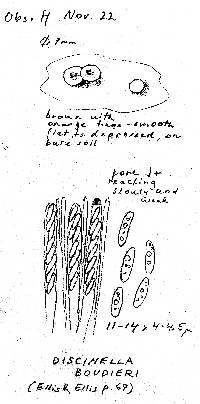 Obs. H Nov. 22
brown with
orange tinge - smooth
flat to depressed, on
bare soil
pore J+
reaching
slowly and
weak
11-14 x 4-4.5µ
DISCINELLA
BOUDIERI
(Ellis & Ellis p. 67)